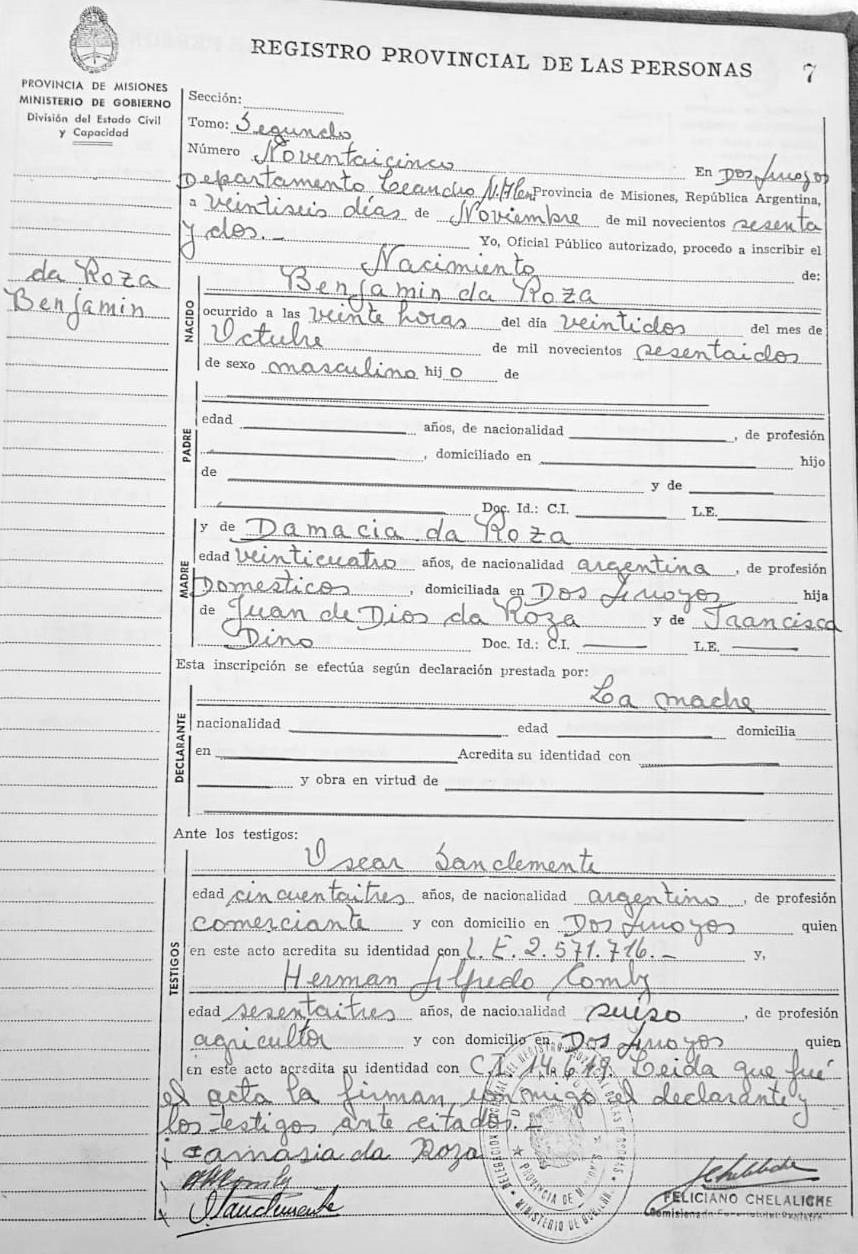 REGISTRO PROVINCIAL DE LAS PERSONAS 7
PROVINCIA DE MISIONES
MINISTERIO DE GOBIERNO
División del Estado Civil
y Capacidad
Sección:
Tomo: Segundo
Número Noventaicinco En Dos Arroyos
Departamento Leandro N. Alem Provincia de Misiones, República Argentina,
a veintiseis días de Noviembre de mil novecientos sesenta
y dos.- Yo, Oficial Público autorizado, procedo a inscribir el
Nacimiento de:
da Roza
Benjamin
NACIDO
Benjamin da Roza
ocurrido a las veinte horas del día veintidos del mes de
Octubre de mil novecientos sesentaidos
de sexo masculino hijo de
PADRE
edad años, de nacionalidad , de profesión
, domiciliado en hijo
de y de
Doc. Id.: C.I. L.E.
MADRE
y de Damacia da Roza
edad veinticuatro años, de nacionalidad argentina , de profesión
Domesticos , domiciliada en Dos Arroyos hija
de Juan de Dios da Roza y de Francisca
Dino Doc. Id.: C.I. L.E.
Esta inscripción se efectúa según declaración prestada por:
La madre
DECLARANTE
nacionalidad edad domicilia
en Acredita su identidad con
y obra en virtud de
Ante los testigos:
TESTIGOS
Oscar Sanclemente
edad cincuentaitres años, de nacionalidad argentino , de profesión
comerciante y con domicilio en Dos Arroyos quien
en este acto acredita su identidad con L.E. 2.571.716.- y,
Herman Alfredo Comby
edad sesentaitres años, de nacionalidad suiso , de profesión
agricultor y con domicilio en Dos Arroyos quien
en este acto acredita su identidad con C.I. 14.619. Leida que fué
el acta la firman conmigo el declarante y
los testigos ante citados.-
Damasia da Roza
Sanclemente
FELICIANO CHELALICHE
PROVINCIA DE MISIONES
MINISTERIO DE GOBIERNO